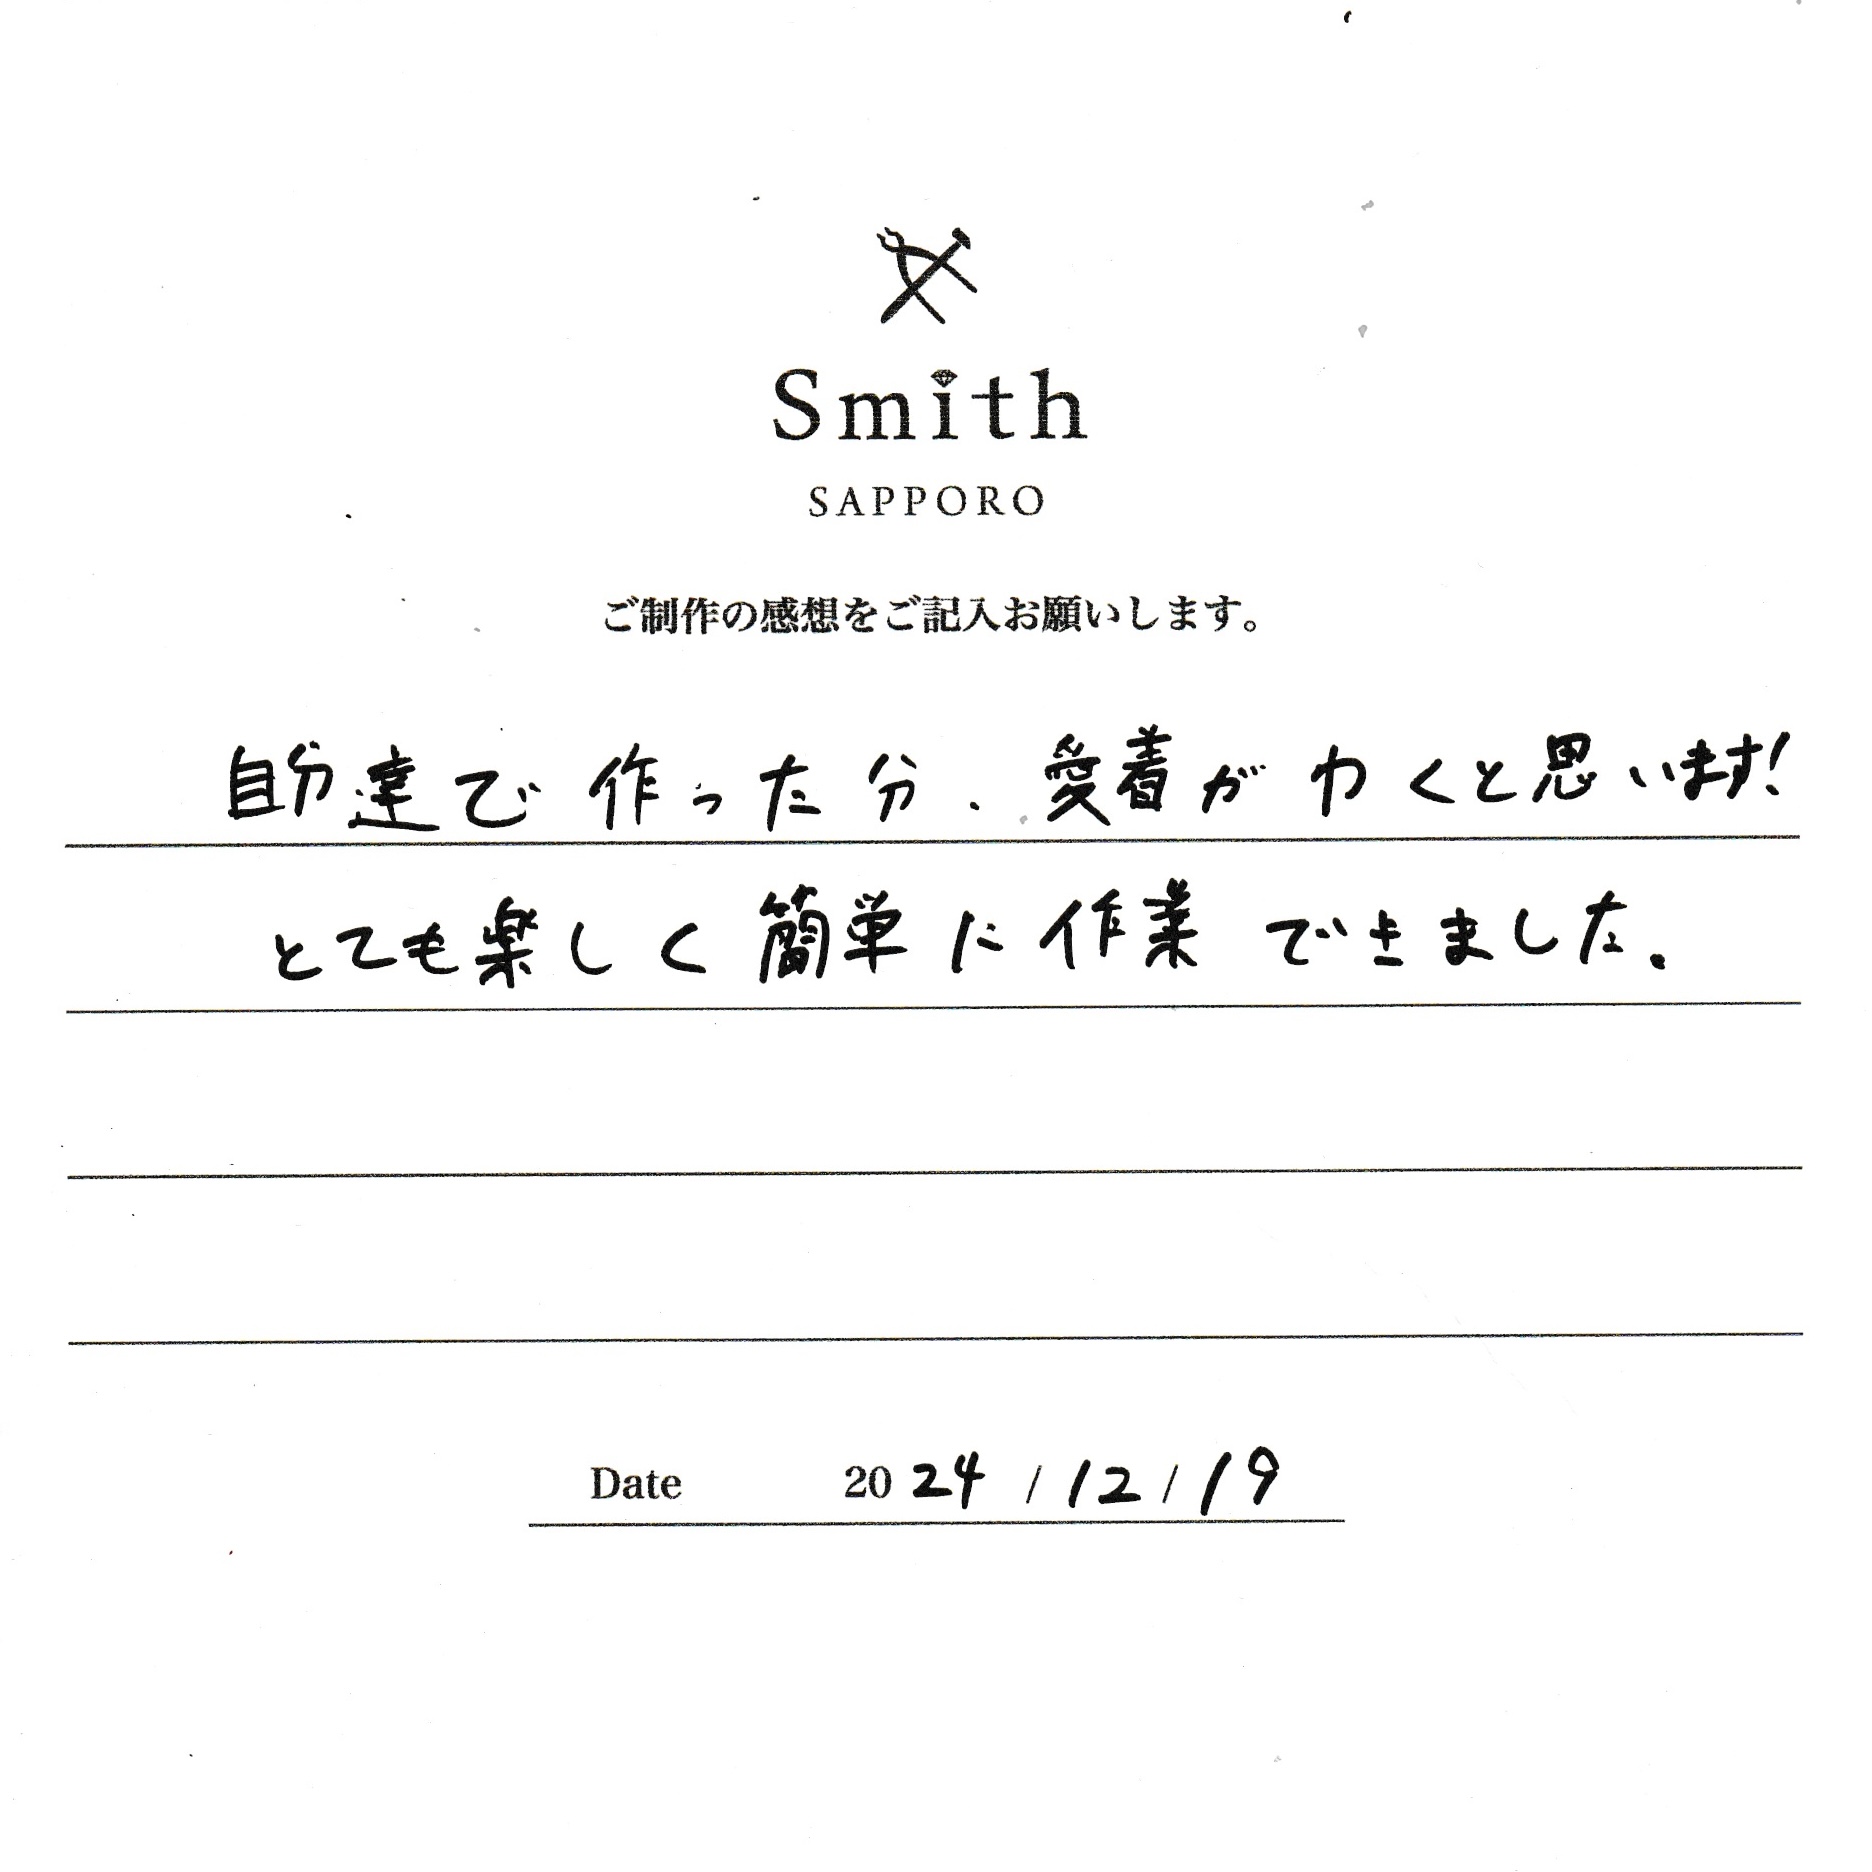 Smith
SAPPORO
ご制作の感想をご記入お願いします。
自分達で作った分、愛着がわくと思います!
とても楽しく簡単に作業できました。
Date 2024/12/19